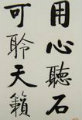 用心聽石
可聆天籟